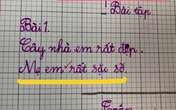 Bài tập
Bài 1.
Cây nhà em rất đẹp.
Mẹ em rất sặc sỡ